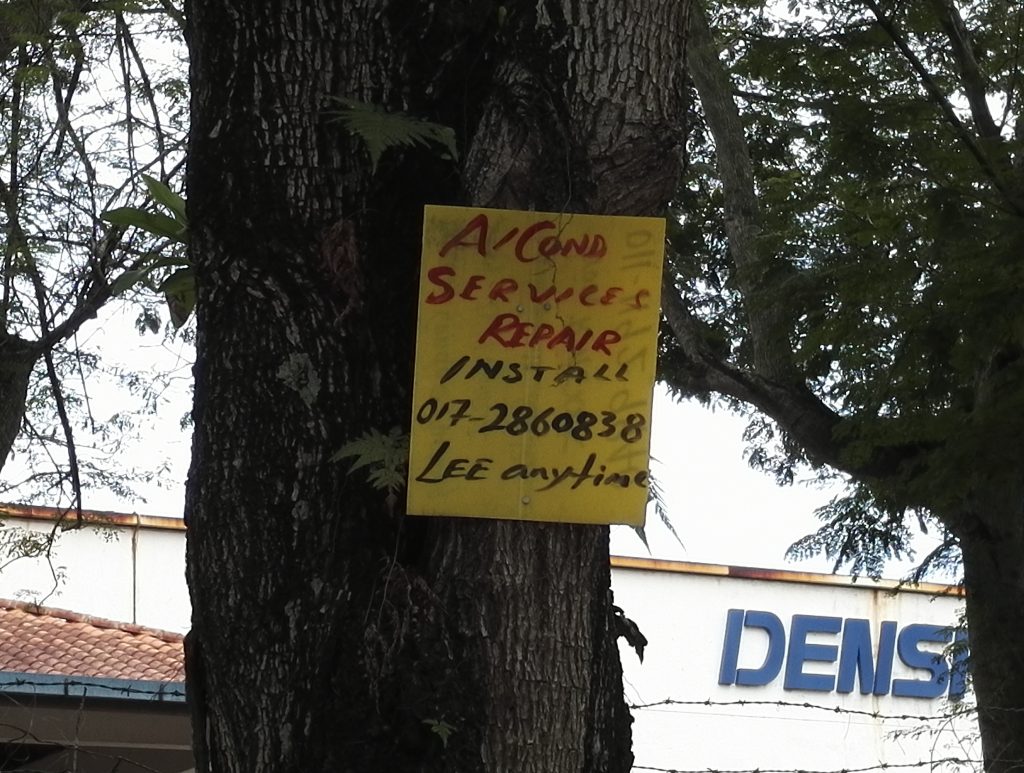 A/COND
SERVICES
REPAIR
INSTALL
017-2860838
LEE anytime
DENS